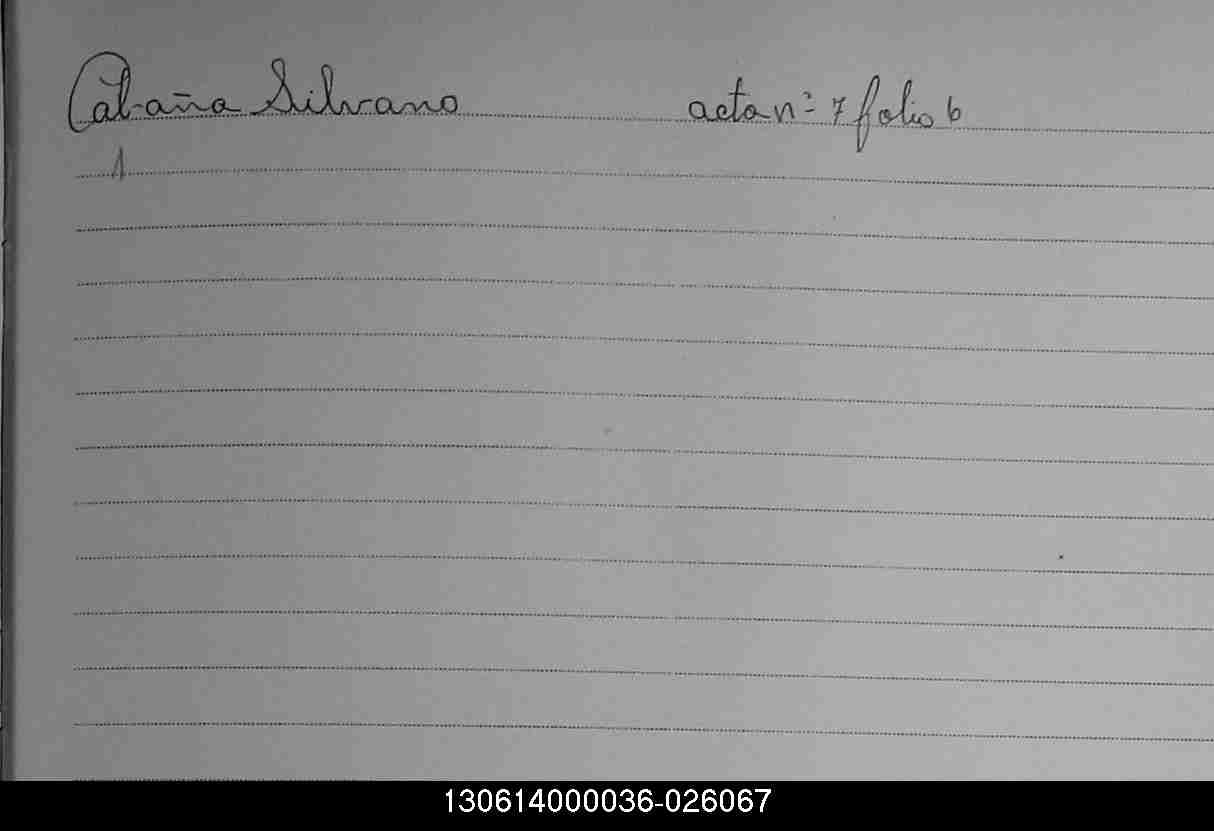 Cabaña Silvano acta nº 7 folio 6
1
130614000036-026067